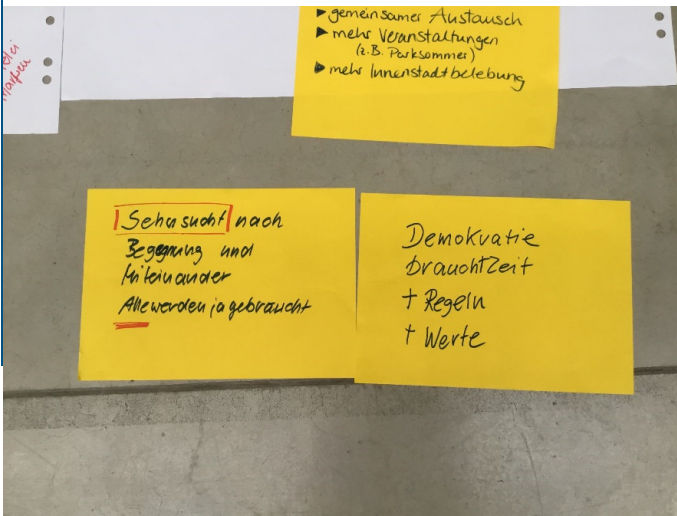 ▶ gemeinsamer Austausch
▶ mehr Veranstaltungen
(z.B. Parksommer)
▶ mehr Innenstadtbelebung
Sehnsucht nach
Begegnung und
Miteinander
Alle werden ja gebraucht
Demokratie
braucht Zeit
+ Regeln
+ Werte